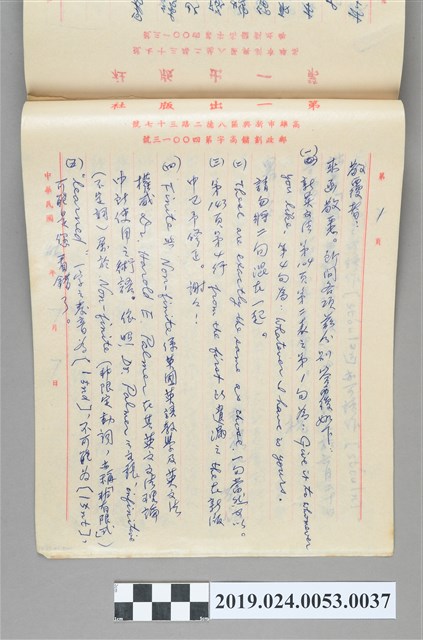 第一出版社
高雄市新興區八德二路三十七號
郵政劃撥高字第四〇〇一三號
第 1 頁
敬覆者：
來函敬悉。所問各項茲分別答覆如下：
(一) 新英文法 第 頁第二表之第1句為：Give it to whomever
you like. 第4句為：Whatever I have is yours.
請勿將二句混在一起。
(二) These are exactly the same as those. 一句當然可以。
(三) 第143頁第4行 from the first 以遺漏 the，在新版
中已予修正。謝謝！
(四) Finite 與 Non-finite 系英國英語教學及英文法
權威 Dr. Harold E. Palmer 在其英文文法理論
中所使用之術語。依照 Dr. Palmer 之說，infinitive
(不定詞) 屬於 Non-finite (非限定動詞，
(五) "learned" 一字之發音為 [lɜːnd]，不可能為 [lɜːnt]。
可能是您看錯了。
中華民國 年 7 月 7 日
2019.024.0053.0037